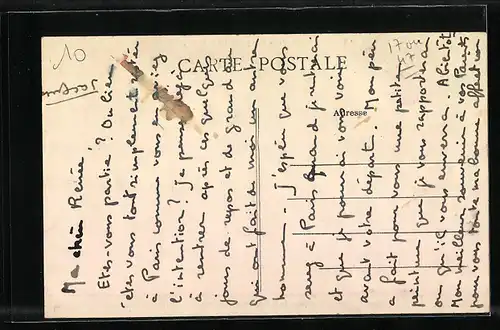 10
1704
CARTE POSTALE
Adresse
Ma chère Renée
Êtes-vous partie ? Ou bien
êtes vous tout simplement restée
à Paris comme vous en aviez
l'intention ? Je pense déjà
à rentrer après ces quelques
jours de repos et de grand air
qui ont fait de moi un autre
homme - J'espère que vous
serez à Paris quand je rentrerai
et que je pourrai vous voir
avant votre départ. Mon père
a fait pour vous une petite
peinture que je vous rapporterai
ou qu'il vous enverra. A bientôt
Mon meilleur souvenir à vos Parents
pour vous toute ma bonne affection